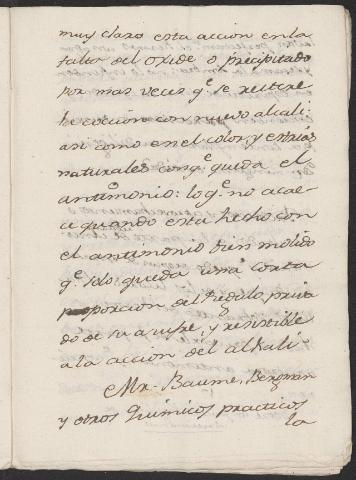 muy claro esta accion en la
falta del oxide o precipitado
por mas veces q.e se reitere
la coccion con nuevo alcali
asi como en el color, y estrias
naturales con q.e queda el
antimonio: lo q.e no acae-
ce quando esta hecho con
el antimonio bien molido
q.e solo queda una corta
proporcion del Regulo priva
do de su azufre, y resistible
a la accion del alkali.
Mr. Baume, Bergman
y otros Quimicos practicos
la